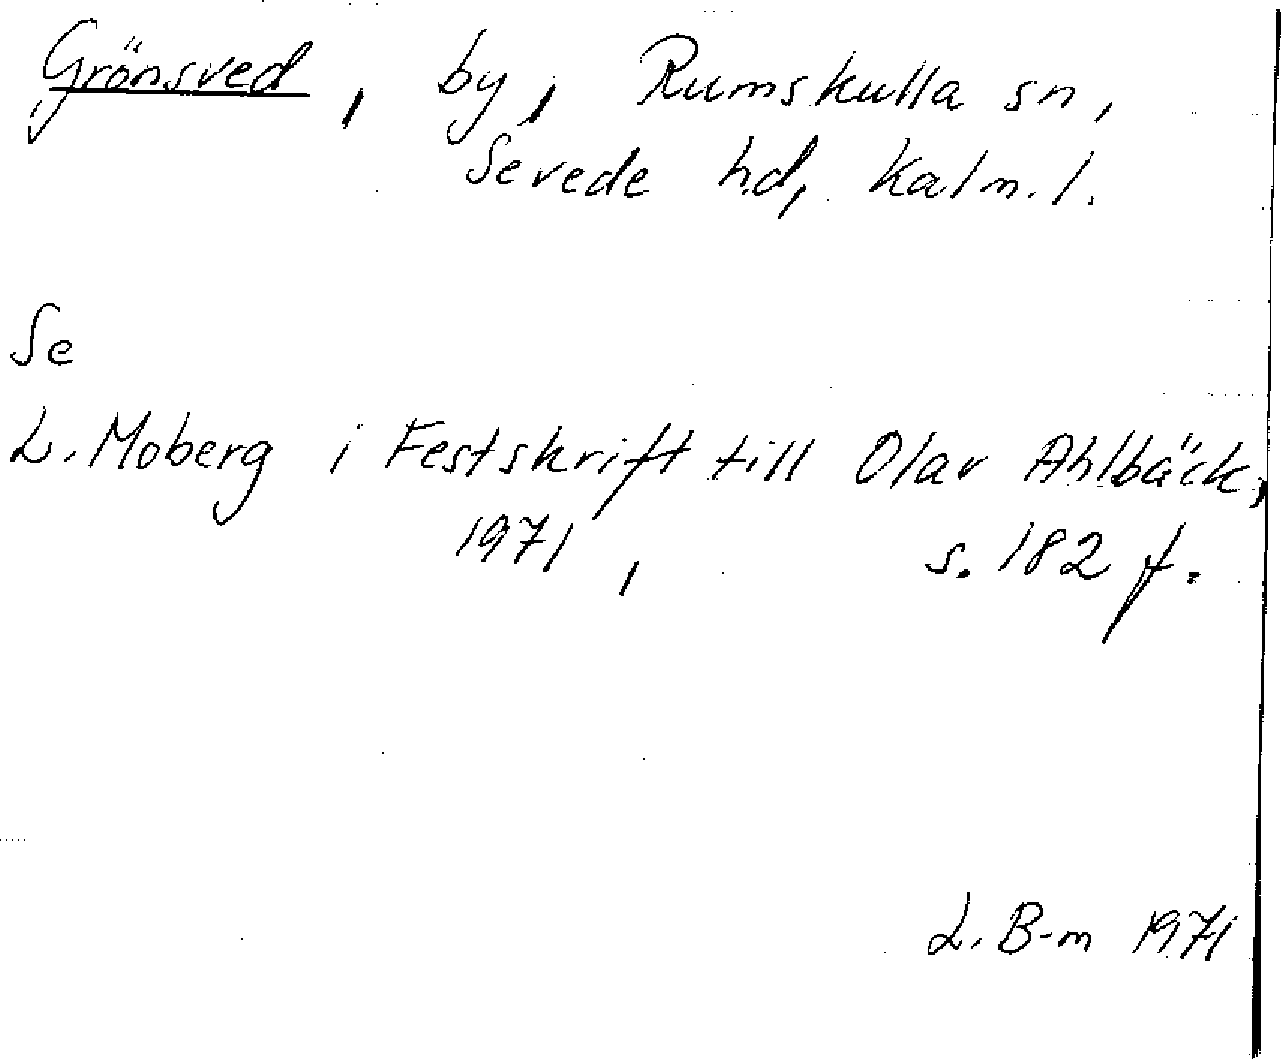 Grönsved, by, Rumskulla sn,
Sevede hd, Kalm. l.
Se
L. Moberg i Festskrift till Olav Ahlbäck,
1971, s. 182 f.
L. B-m 1971